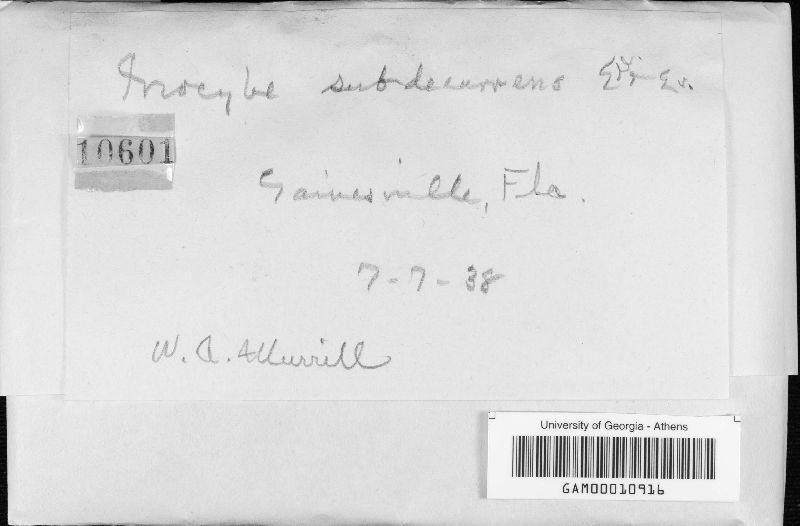 Inocybe subdecurrens E. & E.
10601
Gainesville, Fla.
7-7-38
W. A. Murrill
University of Georgia - Athens
GAM00010916